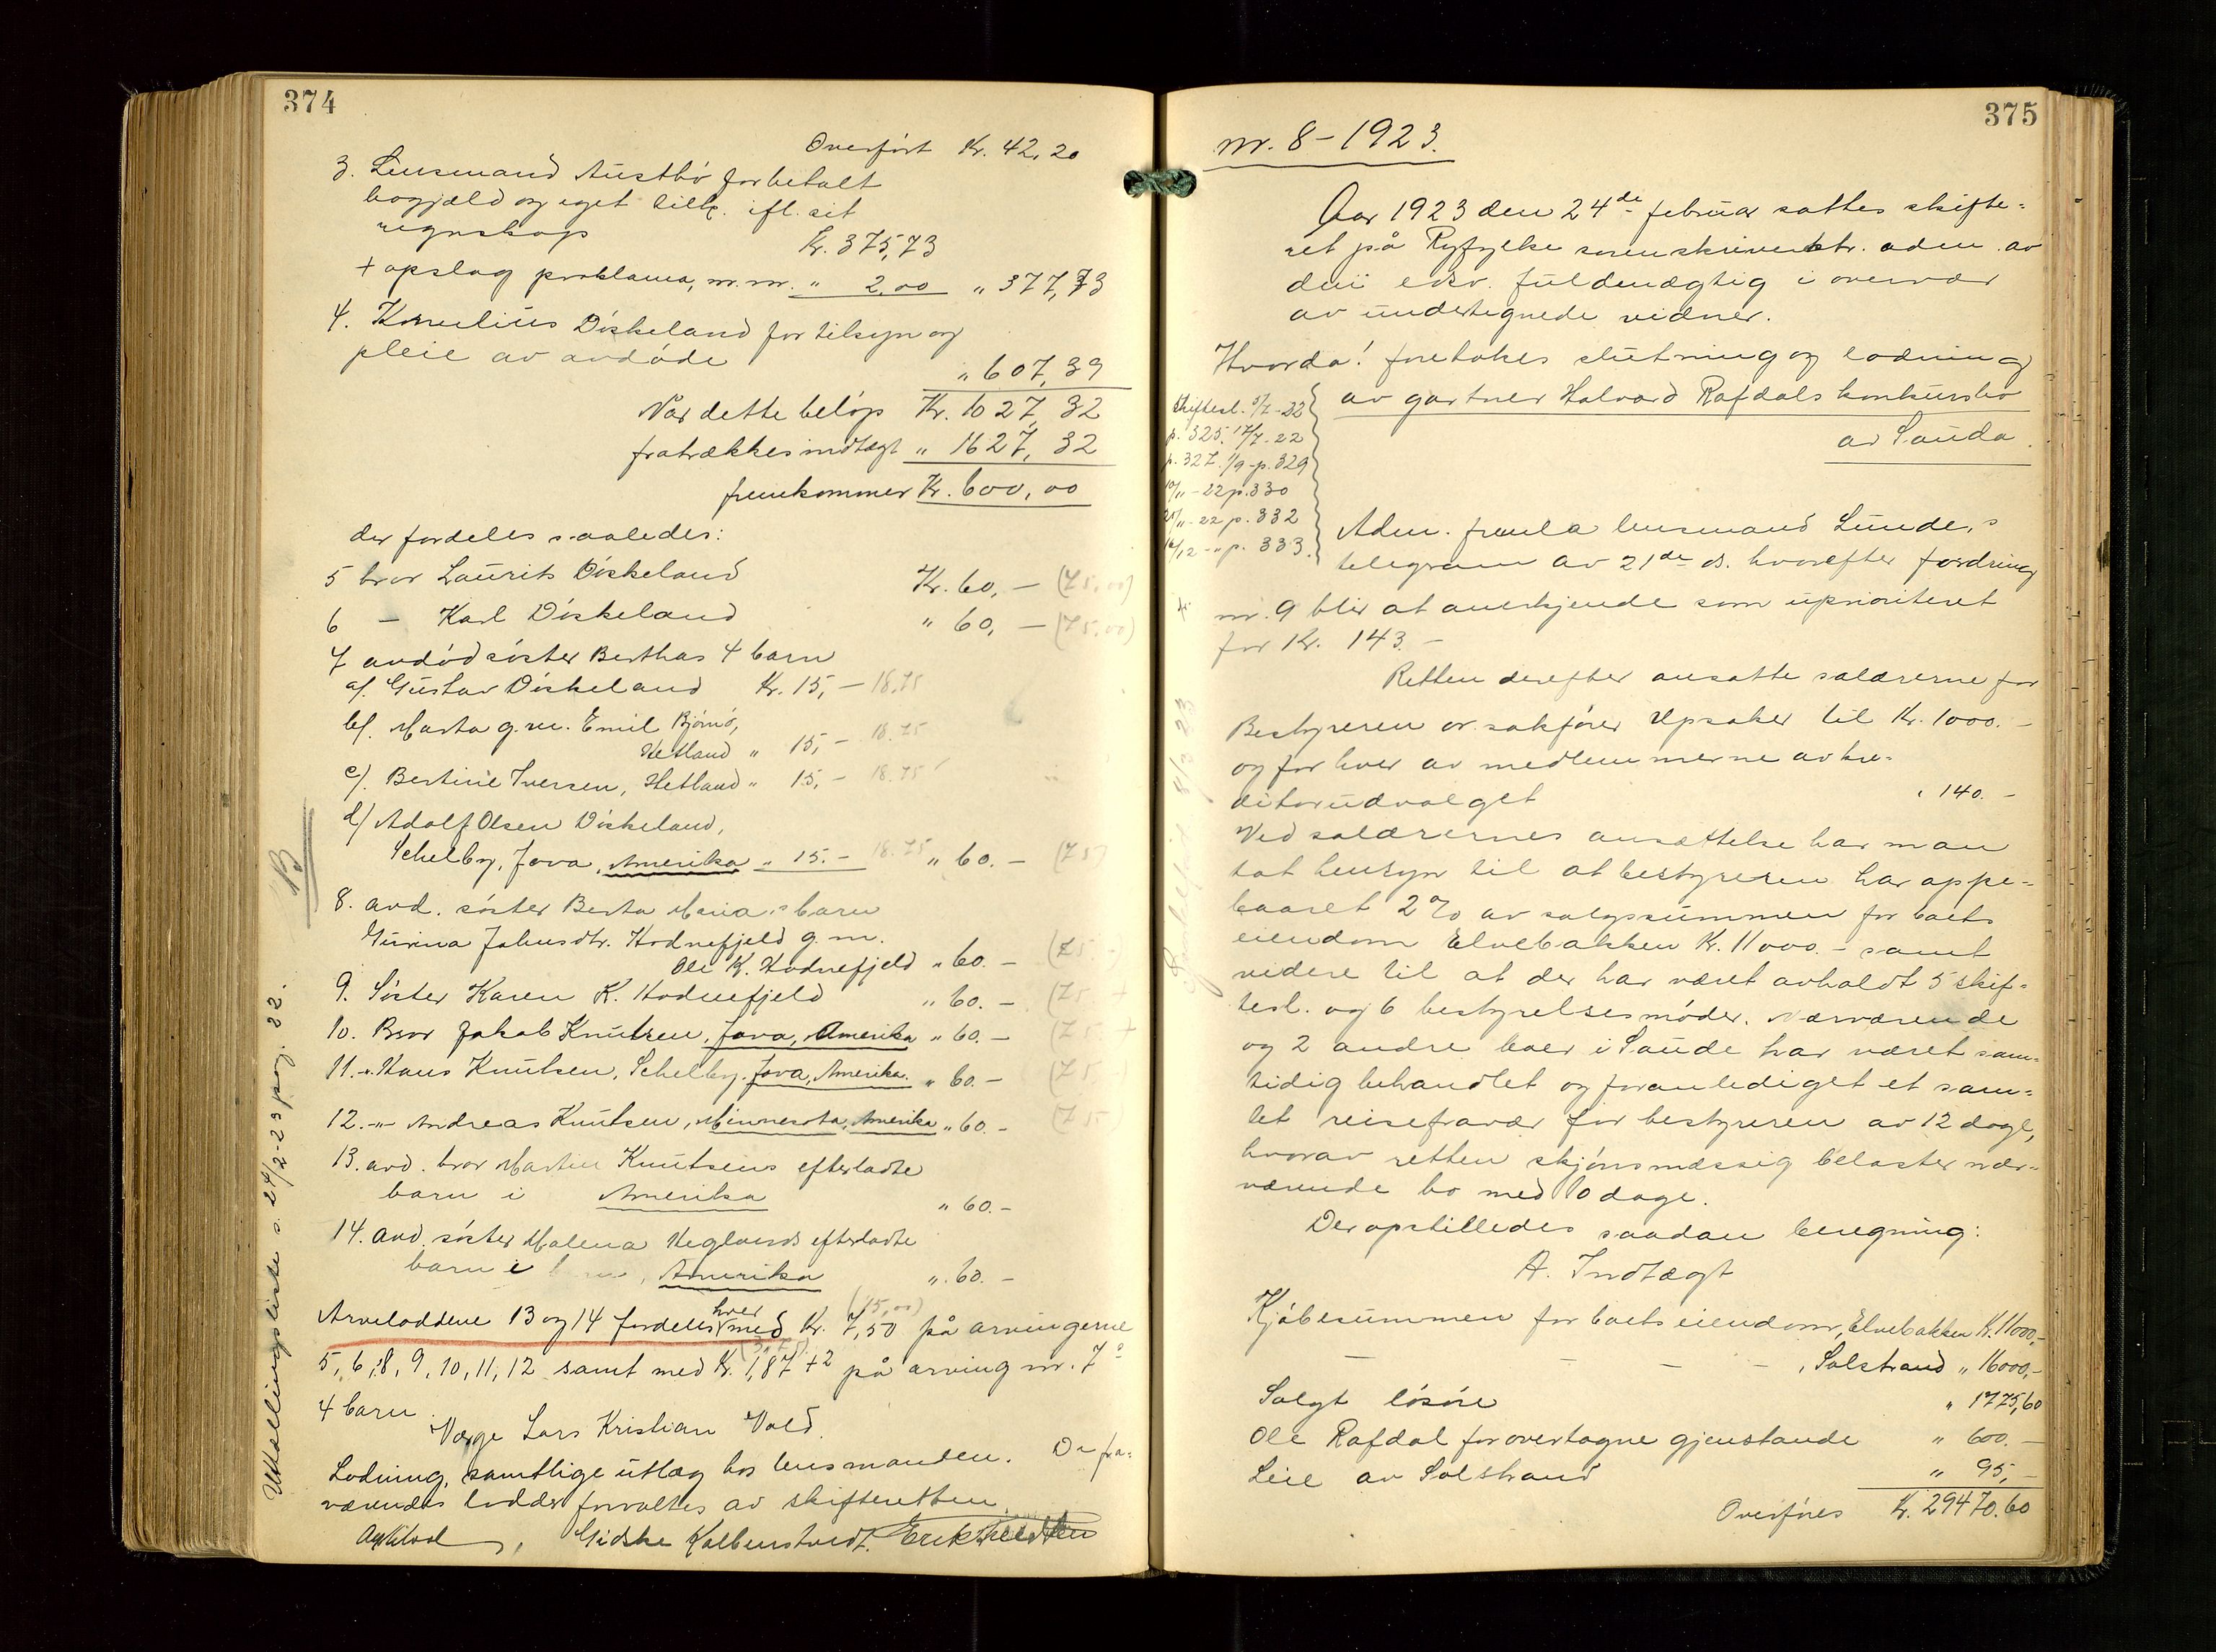 374
Overført Kr. 42,20
3. Lensmand Austbø for betalt
bogjæld og eget tilk. ifl. sit
regnskap Kr. 375,73
+ opslag proklama, m.m. " 2.00 " 377,73
4. Kornelius Diskeland for tilsyn og
pleie av avdøde " 607,39
Når dette beløp Kr. 1027,32
fratrækkes indtægt " 1627,32
fremkommer Kr. 600,00
der fordeles saaledes:
5 bror Laurits Diskeland Kr. 60,- (75,00)
6 - Karl Diskeland " 60,- (75,00)
7 avdød søster Berthas 4 barn
a/. Gustav Diskeland Kr. 15,- 18.75
b/. Marta g.m. Emil Bjørnø,
Hetland " 15,- 18.75
c/. Bertine Iversen, Hetland " 15,- 18.75
d/ Adolf Olsen Diskeland,
Schelby, Jova, Amerika " 15.- 18.75 " 60.- (75)
8. avd. søster Berta Maria's barn
Gurina Johnsdtr. Hodnefjeld g.m.
Ole K. Hodnefjeld " 60.- (75.-
9. Søster Karen K. Hodnefjeld " 60.- (75.
10. Bror Jakob Knutsen, Jova, Amerika " 60.- (75
11. -"- Hans Knutsen, Schelby, Jova, Amerika. " 60.- (75.
12. -"- Andreas Knutsen, Minnesota, Amerika " 60.- (75)
13. avd. bror Martin Knutsens efterladte
barn i Amerika " 60.-
14. avd. søster Malena Heglands efterladte
barn i Amerika " 60.-
Arveloddene 13 og 14 fordeles hver med Kr. 7,50 (15,00) på arvingerne
5, 6, 8, 9, 10, 11, 12 samt med Kr. 1,87 + 2 (3,75) på arving nr. 7s
4 barn.
Værge Lars Kristian Vold.
Lodning, samtlige utlæg hos lensmanden. De fra-
værendes lodder forvaltes av skifteretten.
Gidske Kolbenstvedt.
Utdelingsliste s. 24/2-23 pag. 32.
B
375
nr. 8 - 1923.
Aar 1923 den 24de februar sattes skifte-
ret på Ryfylke sorenskriverktr. adm. av
den edsv. fuldmægtig i overvær
av undertegnede vidner.
Hvorda! foretokes slutning og lodning
av gartner Halvard Rafdals konkursbo
av Sauda.
Skiftesl. 5/7-22
p. 325. 17/7-22
p. 327. 1/9-p. 329
10/11-22 p. 330
25/11-22 p. 332
16/12 -"- p. 333.
Adm. fremla lensmand Lunde's
telegram av 21de ds. hvorefter fordring
nr. 9 blir at anerkjende som uprioriteret
for Kr. 143.-
Retten derefter ansatte salærerne for
Bestyreren o.r.sakfører Upsaker til Kr. 1000.-
og for hver av medlemmerne av kre-
ditorudvalget " 140.-
Ved salærernes ansættelse har man
tat hensyn til at bestyreren har oppe-
baaret 2% av salgssummen for boets
eiendom Elvebakken Kr. 11000.- samt
videre til at der har været avholdt 5 skif-
tesl. og 6 bestyrelsesmøder. Nærværende
og 2 andre boer i Saude har været sam-
tidig behandlet og foranlediget et sam-
let reisefravær for bestyreren av 12 dage,
hvorav retten skjønsmæssig belaster nær-
værende bo med 10 dage.
Der opstilledes saadan beregning:
A. Indtægt
Kjøbesummen for boets eiendom, Elvebakken Kr. 11000,-
- - - - , Solstrand " 16000,-
Solgt løsøre " 1775,60
Ole Rafdal for overtagne gjenstande " 600.-
Leie av Solstrand " 95,-
Overføres Kr. 29470.60